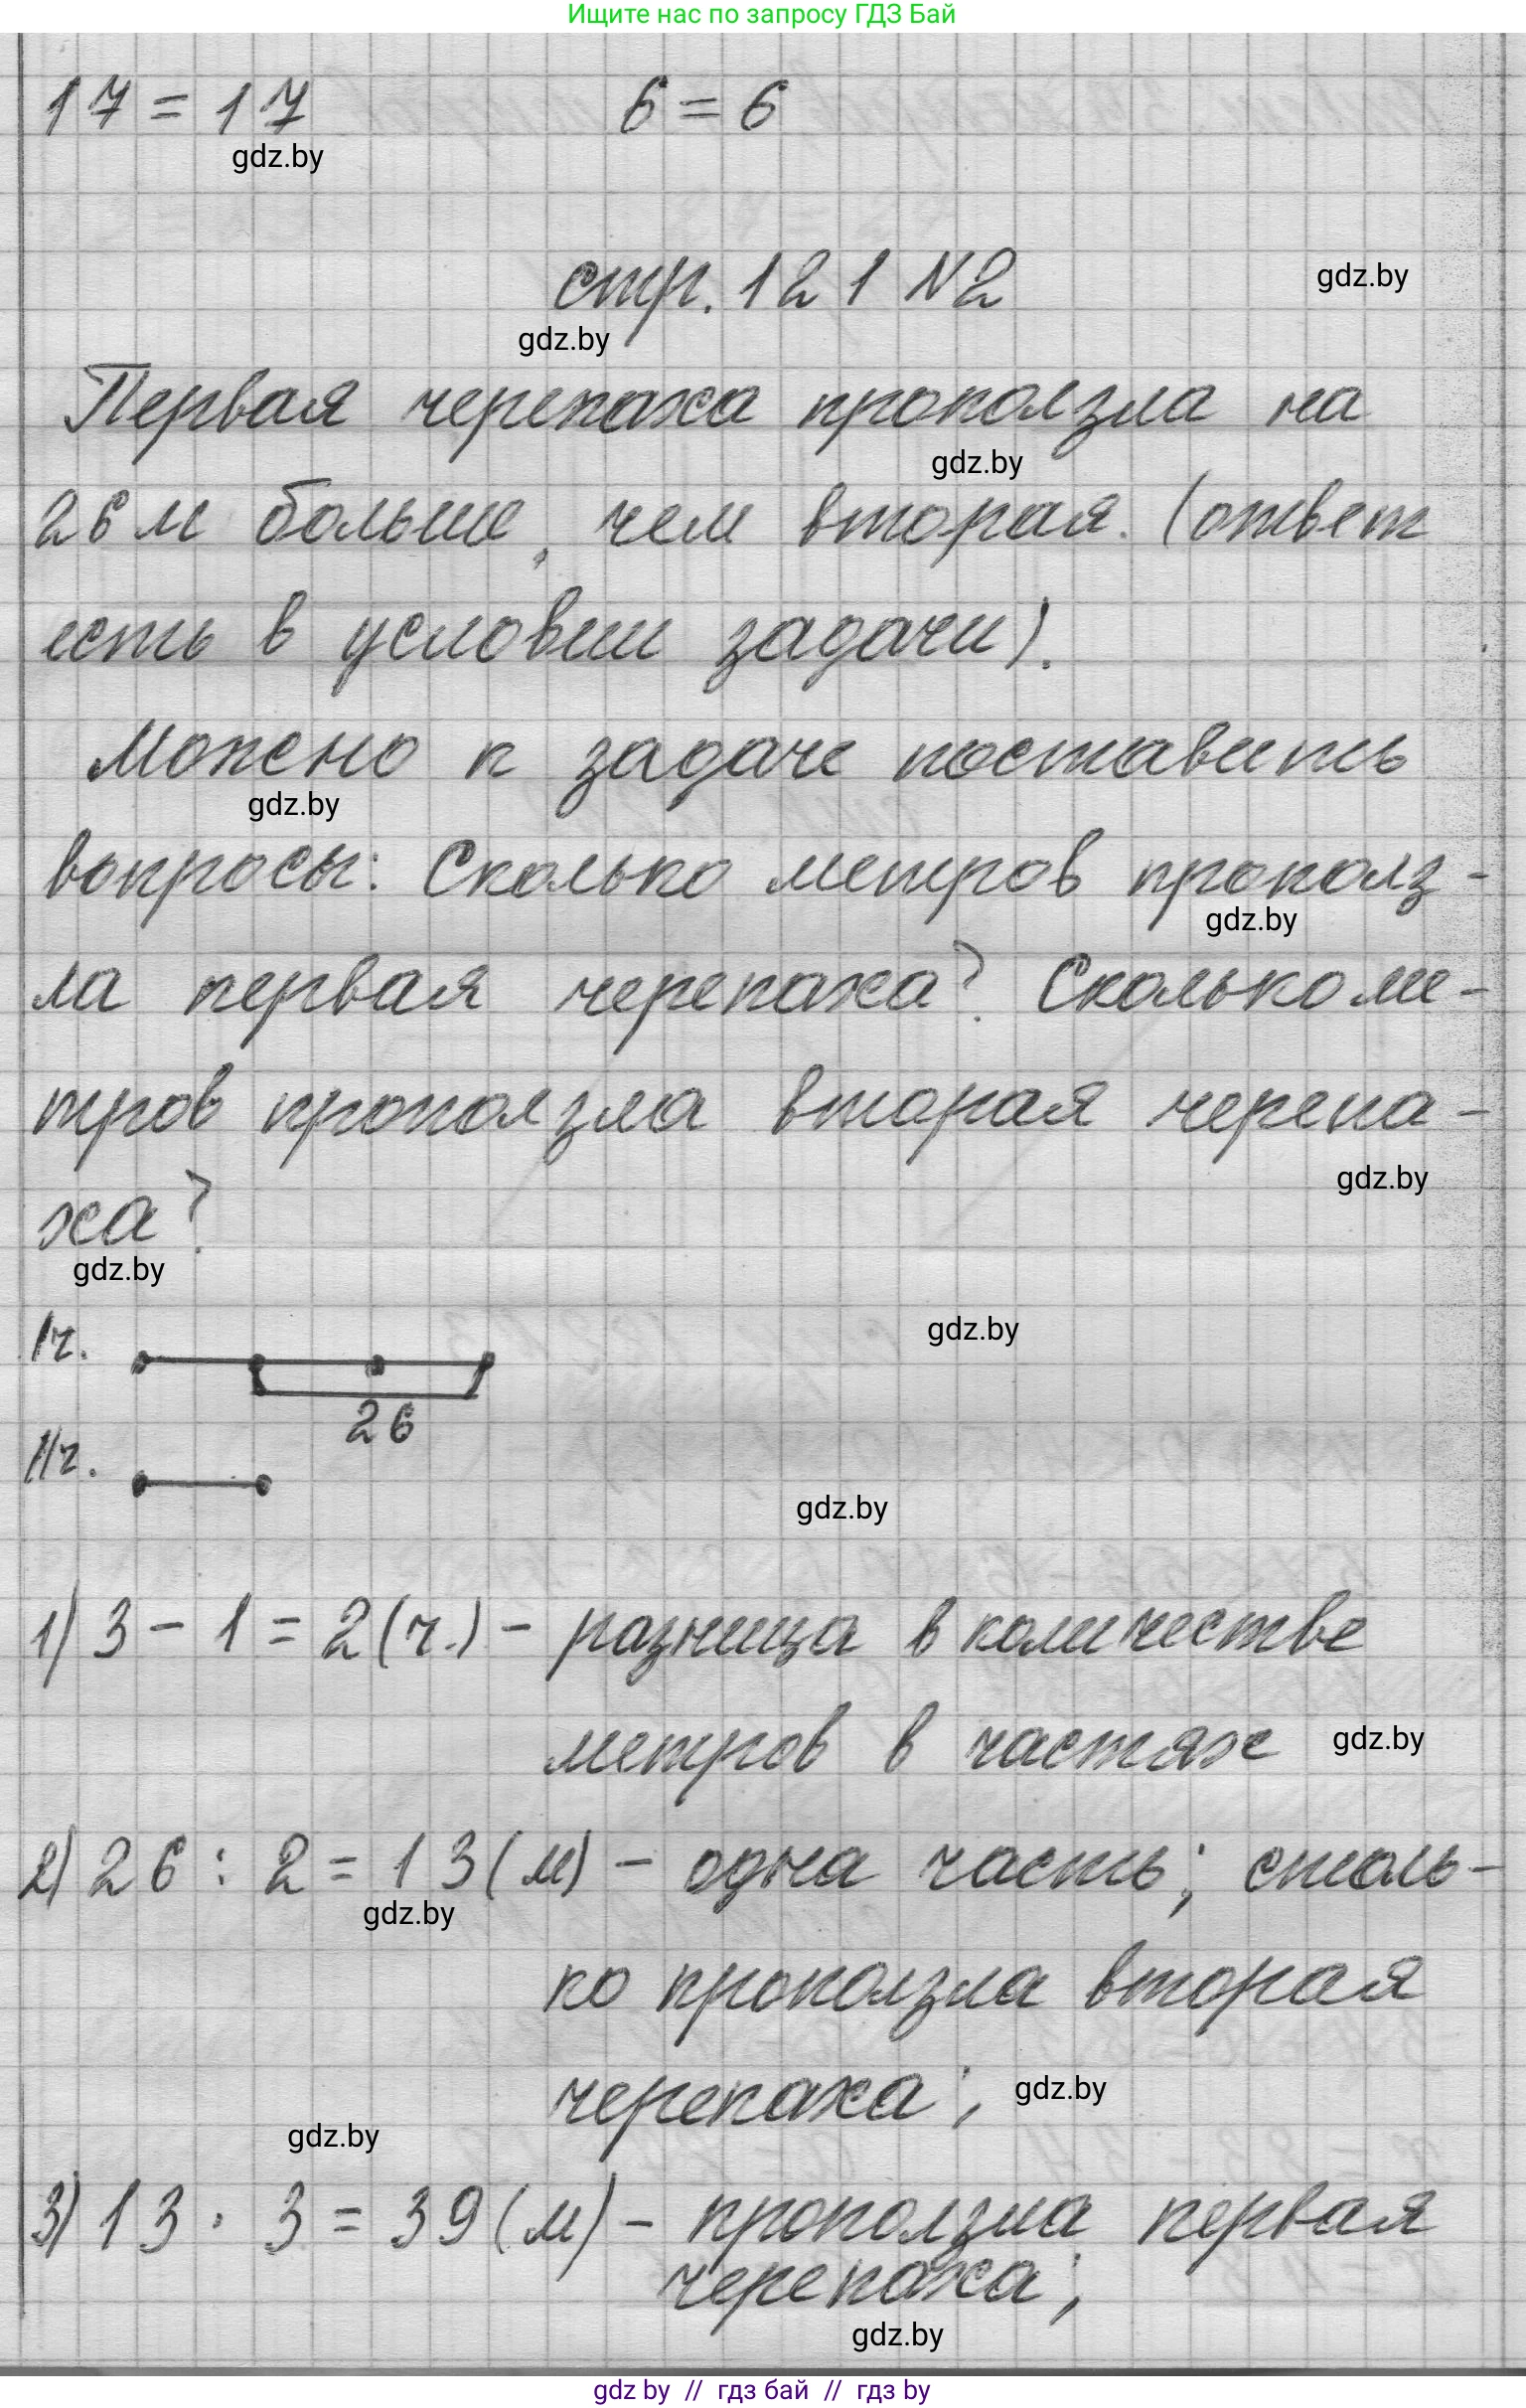 Ищите нас по запросу ГДЗ Бай
17 = 17 6 = 6
gdz.by
стр. 121 №2
gdz.by
gdz.by
Первая черепаха проползла на
gdz.by
26 м больше, чем вторая. (ответ
есть в условии задачи).
Можно к задаче поставить
gdz.by
вопросы: Сколько метров прополз-
gdz.by
ла первая черепаха? Сколько ме-
тров проползла вторая черепа-
gdz.by
ха?
gdz.by
Iч.
gdz.by
26
IIч.
gdz.by
1) 3 - 1 = 2 (ч.) - разница в количестве
метров в частях
gdz.by
2) 26 : 2 = 13 (м) - одна часть; столь-
gdz.by
ко проползла вторая
черепаха;
gdz.by
gdz.by
3) 13 · 3 = 39 (м) - проползла первая
черепаха;
gdz.by
gdz by // гдз бай // гдз by